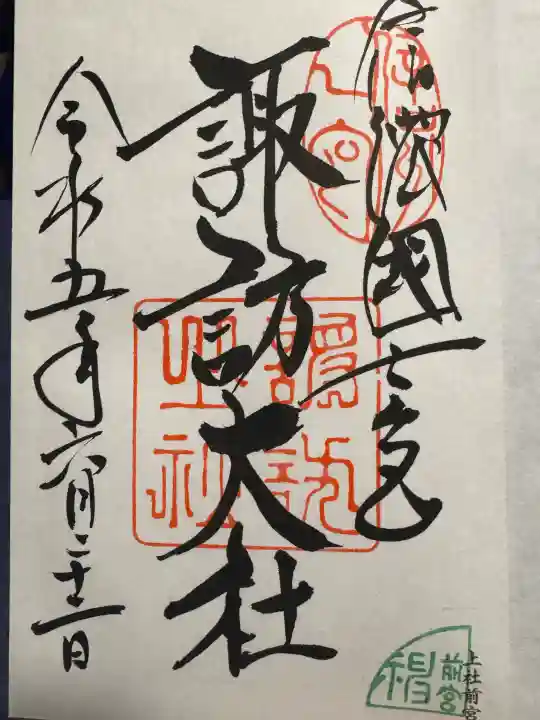 信濃國一之宮
諏訪大社
令和五年六月二十二日
諏訪
上社
前宮
上社前宮